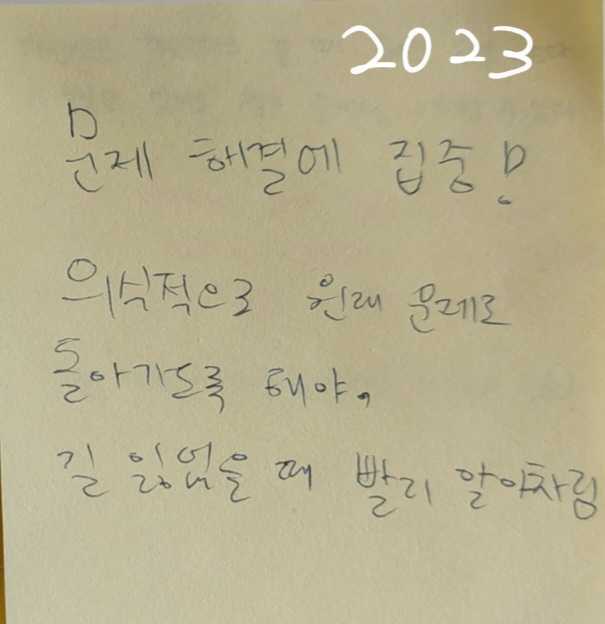 2023
문제 해결에 집중!
의식적으로 원래 문제로
돌아가도록 해야.
길 잃었을 때 빨리 알아차림